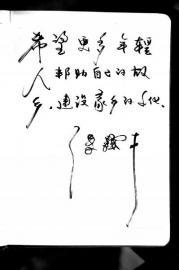 希望更多年轻
人帮助自己的故
乡，建设家乡的文化。